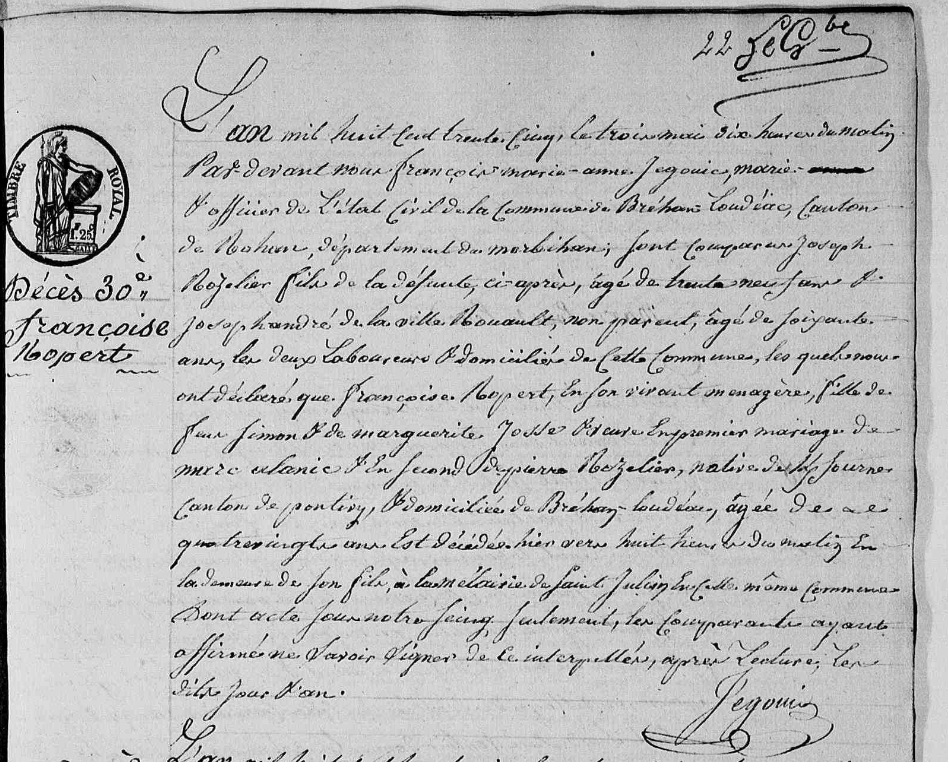 22
TIMBRE ROYAL
F. 25
Décès 30e
françoise
Ropert
L'an mil huit Cent trente Cinq, le trois mai dix heures du matin
Par-devant nous françois marie-anne Jegouic, marie-
& officier de L'état Civil de la Commune de Bréhan Loudéac, Canton
de Rohan, département du morbihan; sont Comparus Joseph
Rozelier fils de la défunte, ci-après, âgé de trente neuf ans &
Joseph andré de la ville Rouault, non parent, âgé de soixante
ans, les deux Laboureurs & domiciliés de Cette Commune, les quels nous
ont déclaré que françoise Ropert, En son vivant menagère, fille de
feus Simon & de marguerite Josse & veuve En premier mariage de
marc alanic & En second de pierre Rozelier, native de
Canton de pontivy, & domiciliée de Bréhan-Loudéac, âgée de
quatrevingts ans Est décédée hier vers huit heures du matin En
la demeure de son fils, à la métairie de Saint Julien En Cette même Commune
Dont acte sous notre seing, seulement, les Comparants ayant
affirmé ne savoir signer de Ce interpellés, après Lecture, les
dits jour & an.
Jegouic
L'an mil huit Cent